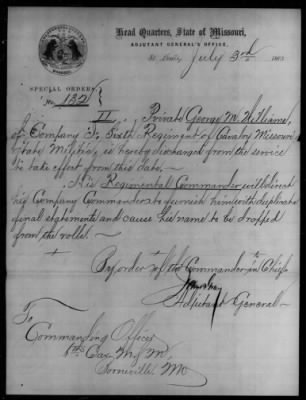 Head Quarters, State of Missouri,
ADJUTANT GENERAL'S OFFICE,
St. Louis, July 3rd 1863
SPECIAL ORDERS,
No. 132
II Private George M. Williams,
of Company I, Sixth Regiment of Cavalry Missouri
State Militia, is hereby discharged from the service
to take effect from this date,—
His Regimental Commander will direct
his Company Commander to furnish him with duplicate
final statements and cause his name to be dropped
from the rolls.—
By order of the Commander in Chief
Adjutant General—
To
Commanding Officer
6th Cav. M. S. M.
Mo